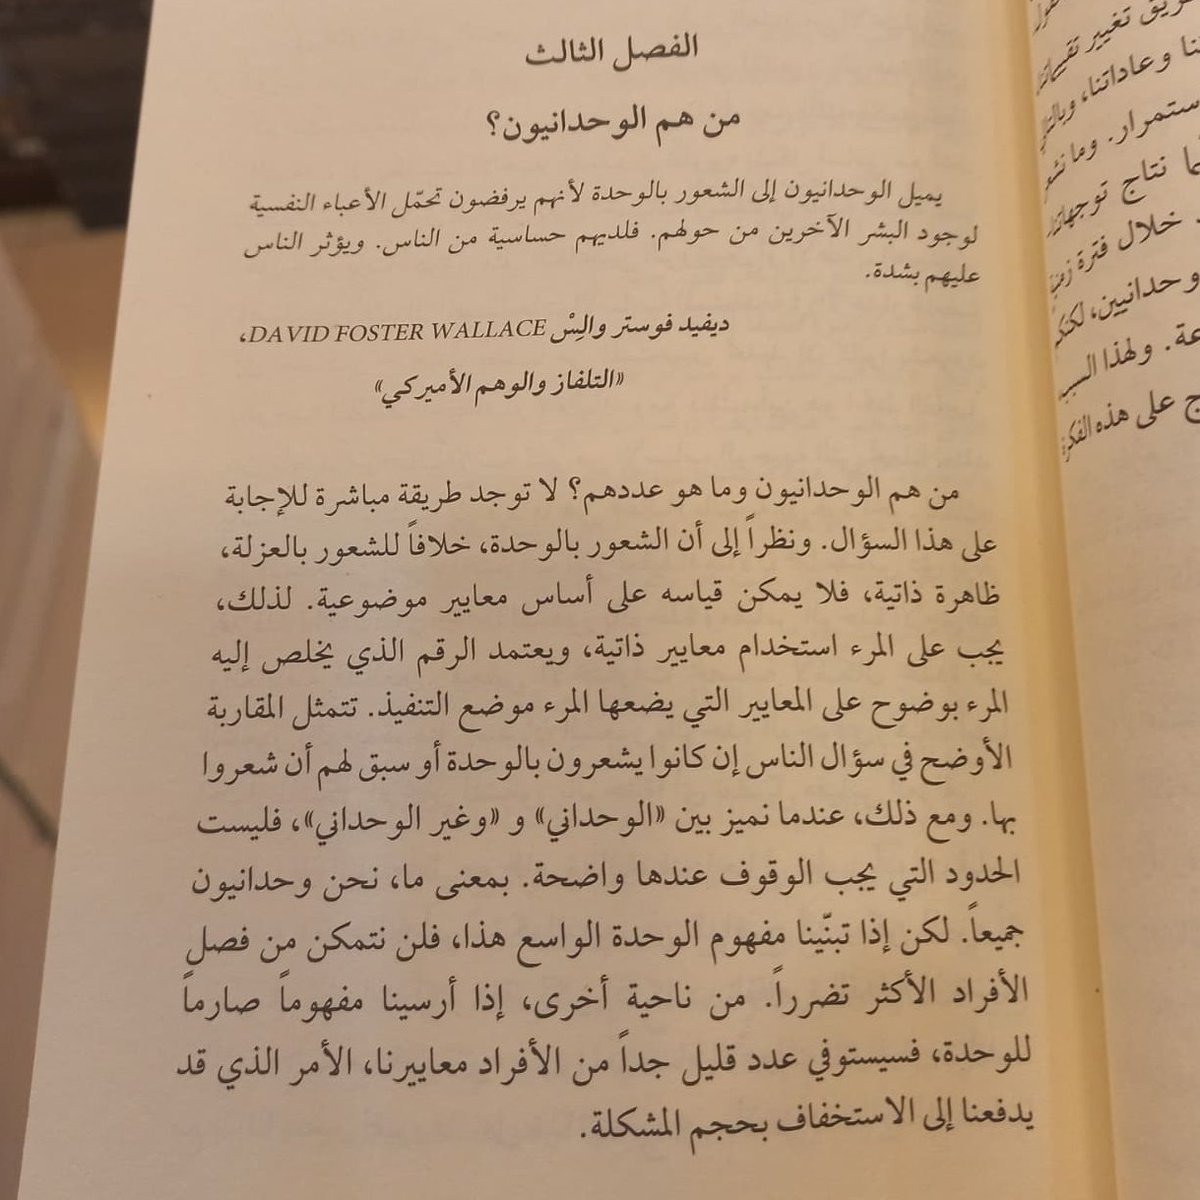 الفصل الثالث
من هم الوحدانيون؟
يميل الوحدانيون إلى الشعور بالوحدة لأنهم يرفضون تحمّل الأعباء النفسية
لوجود البشر الآخرين من حولهم. فلديهم حساسية من الناس. ويؤثر الناس
عليهم بشدة.
ديفيد فوستر والِسْ DAVID FOSTER WALLACE،
«التلفاز والوهم الأميركي»
من هم الوحدانيون وما هو عددهم؟ لا توجد طريقة مباشرة للإجابة
على هذا السؤال. ونظراً إلى أن الشعور بالوحدة، خلافاً للشعور بالعزلة،
ظاهرة ذاتية، فلا يمكن قياسه على أساس معايير موضوعية. لذلك،
يجب على المرء استخدام معايير ذاتية، ويعتمد الرقم الذي يخلص إليه
المرء بوضوح على المعايير التي يضعها المرء موضع التنفيذ. تتمثل المقاربة
الأوضح في سؤال الناس إن كانوا يشعرون بالوحدة أو سبق لهم أن شعروا
بها. ومع ذلك، عندما نميز بين «الوحداني» و «وغير الوحداني»، فليست
الحدود التي يجب الوقوف عندها واضحة. بمعنى ما، نحن وحدانيون
جميعاً. لكن إذا تبنّينا مفهوم الوحدة الواسع هذا، فلن نتمكن من فصل
الأفراد الأكثر تضرراً. من ناحية أخرى، إذا أرسينا مفهوماً صارماً
للوحدة، فسيستوفي عدد قليل جداً من الأفراد معاييرنا، الأمر الذي قد
يدفعنا إلى الاستخفاف بحجم المشكلة.
تغيير
وعاداتنا،
ستمرار. وما
نتاج توجهاتنا
خلال فترة
وحدانيين،
ولهذا
على هذه الفكرة